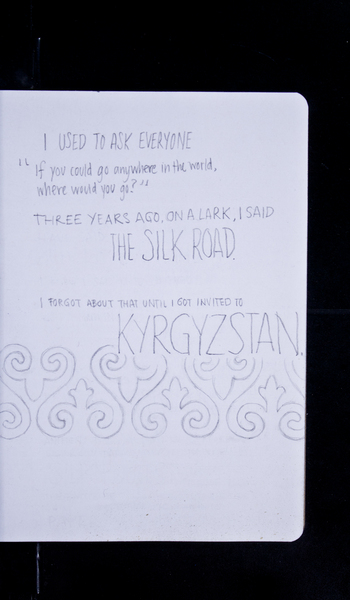 I USED TO ASK EVERYONE
"If you could go anywhere in the world,
where would you go?"
THREE YEARS AGO, ON A LARK, I SAID
THE SILK ROAD.
I FORGOT ABOUT THAT UNTIL I GOT INVITED TO
KYRGYZSTAN.